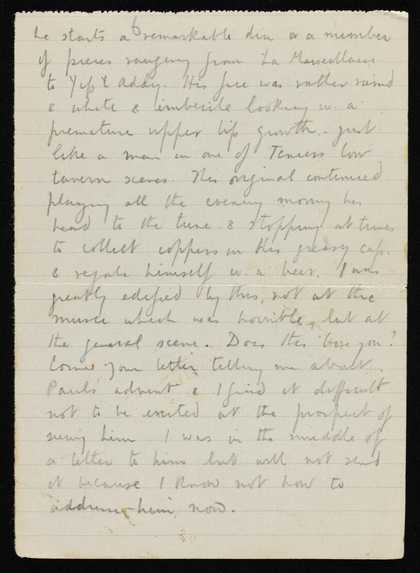 he starts a remarkable din on a number
of pieces ranging from La Marseillaise
to Yip I Addy. His face was rather raised
& white & imbecile looking w. a
premature upper lip growth - just
like a man in one of Teniers low
tavern scenes. This original continued
playing all the evening moving his
head to the tune & stopping at times
to collect coppers in his greasy cap
& regale himself w. a beer. I was
greatly edified by this, not at the
music which was horrible, but at
the general scene. Does this bore you?
Comes your letter telling me about
Paul's advent & I find it difficult
not to be excited at the prospect of
seeing him. I was in the middle of
a letter to him but will not send
it because I know not how to
address him now.